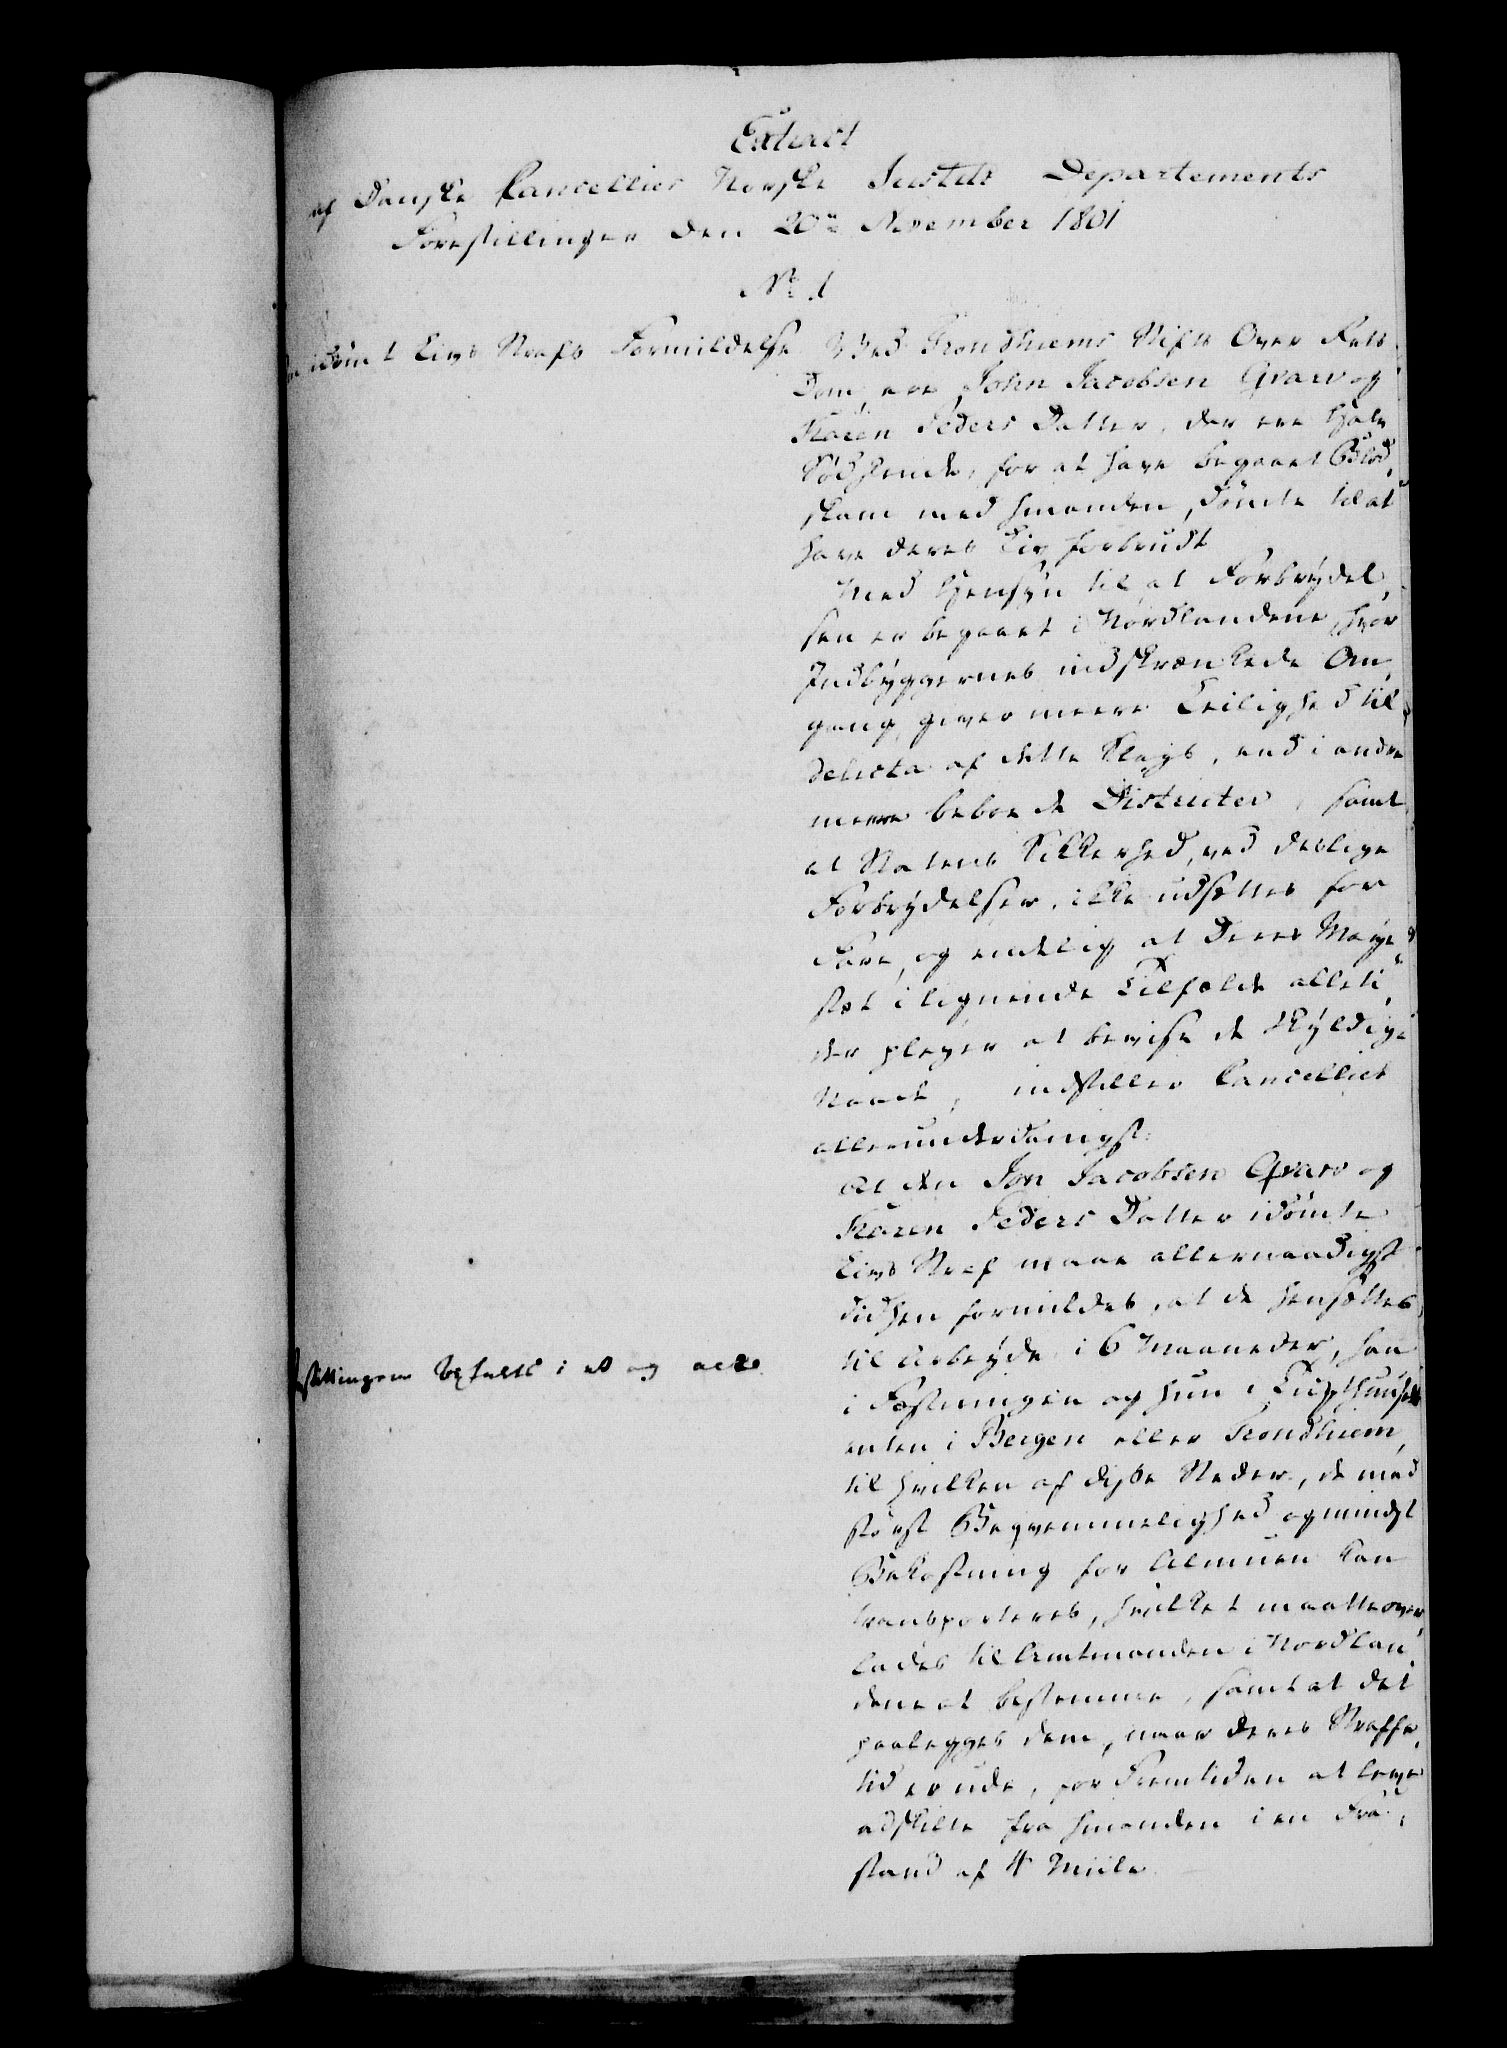 Extract
af Danske Cancellies Norske Justits Departements
Forestillinger den 20de November 1801
No 1
idömt Livs Strafs Formildelse
Ved Trondhiems Stifts Over Rets
Dom, ere John Jacobsen Qvarv og
Karen Peders Datter, der ere Halv
Södskende, for at have begaaet Blod,
skam med hinanden, dömte til at
have deres Liv forbrudt
Med Hensyn til at Forbrydel,
sen er begaaet i Nordlandene, hvor
Indbyggernes indskrænkede Om,
gang, giver meere Leilighed til
delicta af dette Slags, end i andre
meere beboede Districter, samt
at Statens Sikkerhed, ved deslige
Forbrydelser, ikke udsættes for
Fare, og endelig at Deres Maje,
stæt i lignende Tilfælde alleti,
der pleyer at bevise de skyldige
Naade, indstiller Cancelliet
allerunderdanigst:
At den Jon Jacobsen Qvarv og
Karen Peders Datter idömte
Livs Straf maae allernaadigst
didhen formildes, at de hensættes
til Arbeyde i 6 Maaneder, han
i Fæstningen og hun i Tugthuuset
enten i Bergen eller Trondhiem,
til hvilken af disse Steder, de med
störst Beqvemmelighed og mindst
Bekostning for Almuen kan
transporteres, hvilket maatte over,
lades til Amtmanden i Nordlan,
dene at bestemme, samt at det
paalegges dem, naar deres Straffe,
tid er ude, for Fremtiden at leve
adskilte fra hinanden i en Fra,
stand af 4 Miile
stillingen bifaldt i et og alt.